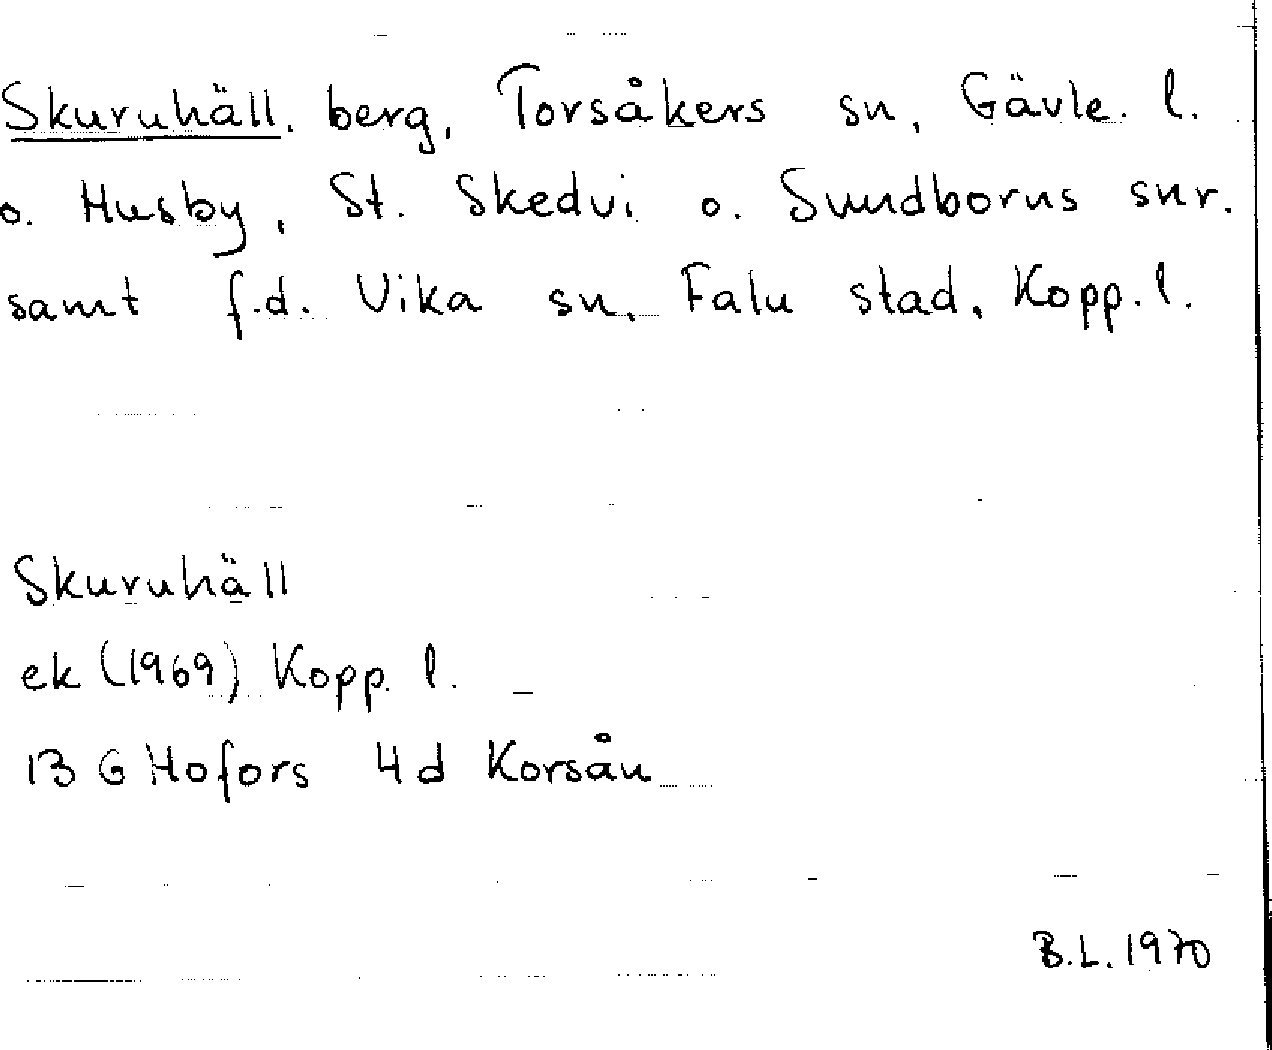 Skuruhäll, berg, Torsåkers sn, Gävle. l.
o. Husby, St. Skedvi o. Sundborns snr.
samt f.d. Vika sn, Falu stad, Kopp. l.
Skuruhäll
ek (1969) Kopp. l.
13 G Hofors 4d Korsån
B.L. 1970